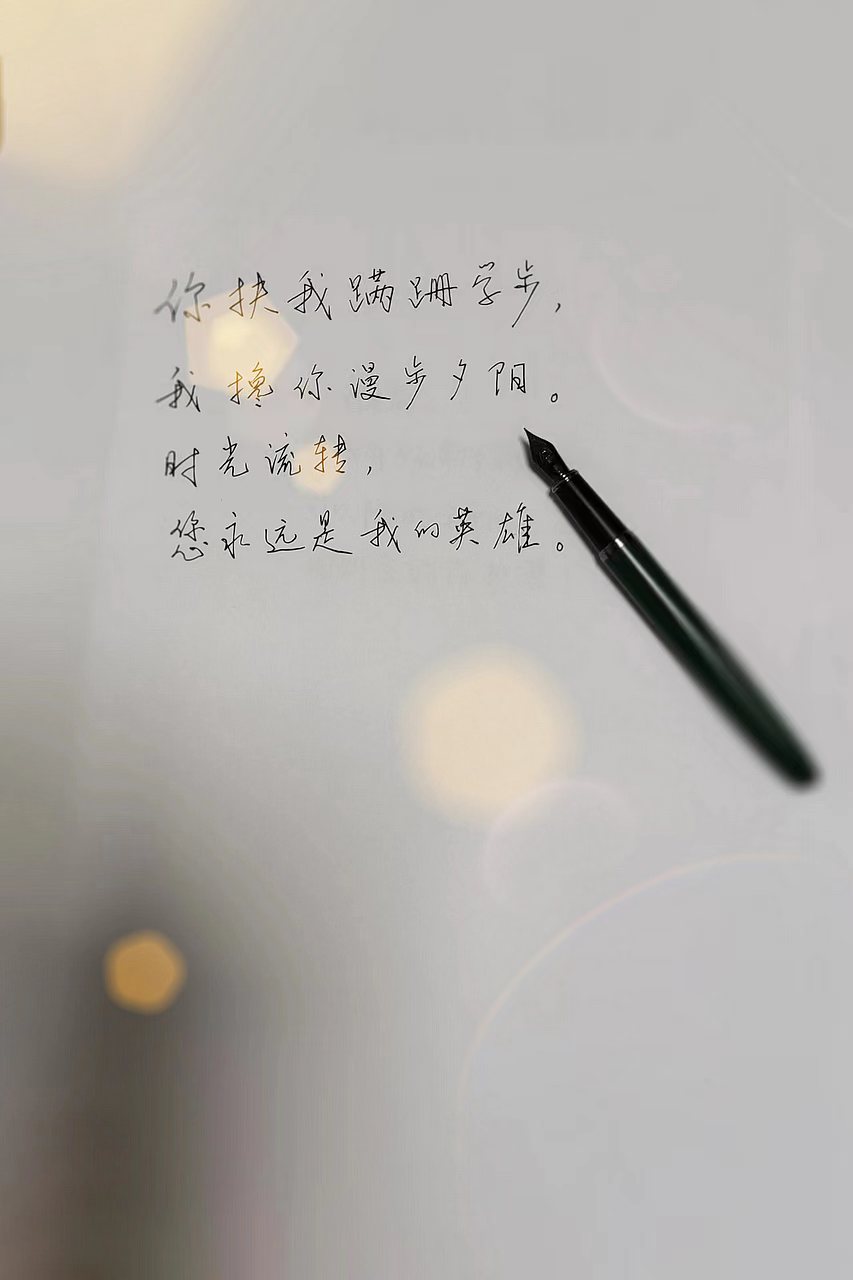 你扶我蹒跚学步，
我搀你漫步夕阳。
时光流转，
您永远是我的英雄。